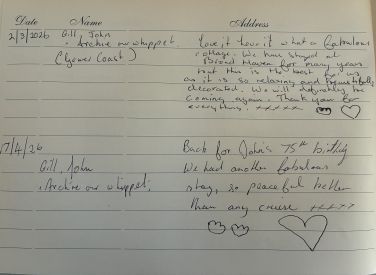 Date Name Address
2/3/2026 Gill, John Love it, love it what a fabulous
+ Archie our whippet. cottage. We have stayed at
(Gower Coast) Broad Haven for many years
but this is the best for us
as it is so relaxing and beautifully
decorated. We will definitely be
coming again. Thank you for
everything. xxxxx
17/4/26 Back for John's 75th birthday
Gill, John We had another fabulous
+ Archie our whippet. stay, so peaceful better
than any cruise xxxxx